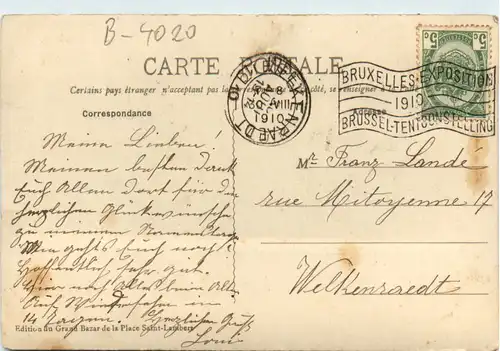 B-4020
CARTE POSTALE
Certains pays étranger n'acceptant pas la côté, se renseigner à la
Correspondance
BRUXELLES-EXPOSITION
1910
BRUSSEL-TENTOONSTELLING
WELKENRAEDT
1910
5c 5c
Meine Lieben!
Meinen besten Dank
Euch Allen dort für die
herzlichen Glückwünsche
zu meinem Namenstag.
Wie gehts Euch noch?
Hoffentlich sehr gut.
Hier noch Alles beim Alten
Auf Wiedersehn in
14 Tagen. Herzlichen Gruß
Mr. Franz Landé
rue Mitoyenne 17
Welkenraedt
Edition du Grand Bazar de la Place Saint-Lambert